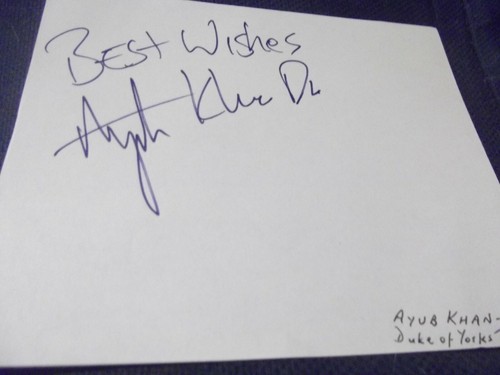 Best Wishes
Ayub Khan D
AYUB KHAN-
Duke of Yorks